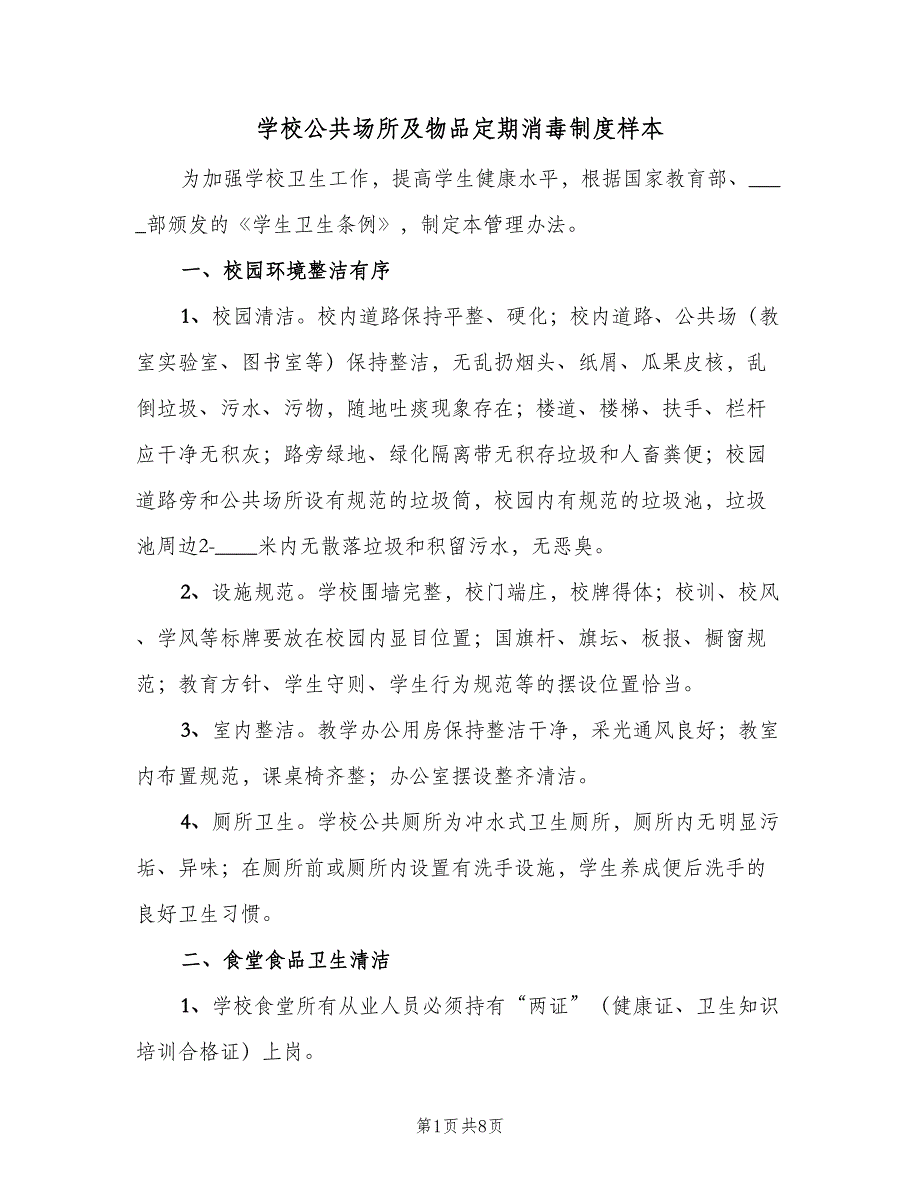 学校公共场所及物品定期消毒制度样本
为加强学校卫生工作，提高学生健康水平，根据国家教育部、___
_部颁发的《学生卫生条例》，制定本管理办法。
一、校园环境整洁有序
1、校园清洁。校内道路保持平整、硬化；校内道路、公共场（教
室实验室、图书室等）保持整洁，无乱扔烟头、纸屑、瓜果皮核，乱
倒垃圾、污水、污物，随地吐痰现象存在；楼道、楼梯、扶手、栏杆
应干净无积灰；路旁绿地、绿化隔离带无积存垃圾和人畜粪便；校园
道路旁和公共场所设有规范的垃圾筒，校园内有规范的垃圾池，垃圾
池周边2-____米内无散落垃圾和积留污水，无恶臭。
2、设施规范。学校围墙完整，校门端庄，校牌得体；校训、校风
、学风等标牌要放在校园内显目位置；国旗杆、旗坛、板报、橱窗规
范；教育方针、学生守则、学生行为规范等的摆设位置恰当。
3、室内整洁。教学办公用房保持整洁干净，采光通风良好；教室
内布置规范，课桌椅齐整；办公室摆设整齐清洁。
4、厕所卫生。学校公共厕所为冲水式卫生厕所，厕所内无明显污
垢、异味；在厕所前或厕所内设置有洗手设施，学生养成便后洗手的
良好卫生习惯。
二、食堂食品卫生清洁
1、学校食堂所有从业人员必须持有“两证”（健康证、卫生知识
培训合格证）上岗。
第1页 共8页